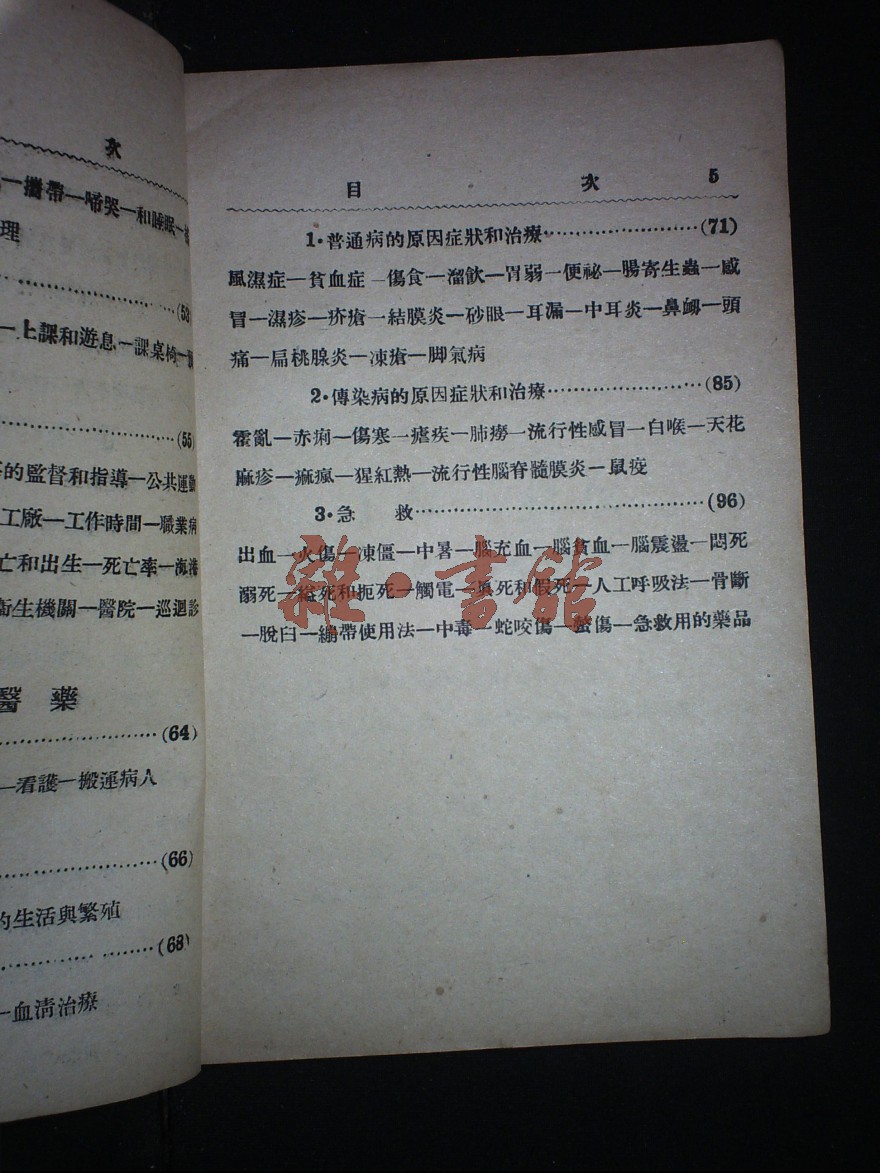 次
一攜帶一啼哭一和睡眠一
理
(53)
一上課和遊息一課桌椅一
(55)
的監督和指導一公共運動
工廠一工作時間一職業病
亡和出生一死亡率一海港
衛生機關一醫院一巡迴診
醫藥
(64)
一看護一搬運病人
(66)
的生活與繁殖
(68)
一血清治療
目 次 5
1·普通病的原因症狀和治療(71)
風濕症一貧血症一傷食一溜飲一胃弱一便祕一腸寄生蟲一感
冒一濕疹一疥瘡一結膜炎一砂眼一耳漏一中耳炎一鼻衂一頭
痛一扁桃腺炎一凍瘡一脚氣病
2·傳染病的原因症狀和治療(85)
霍亂一赤痢一傷寒一瘧疾一肺癆一流行性感冒一白喉一天花
麻疹一痲瘋一猩紅熱一流行性腦脊髓膜炎一鼠疫
3·急 救(96)
出血一火傷一凍僵一中暑一腦充血一腦貧血一腦震盪一悶死
溺死一縊死和扼死一觸電一眞死和假死一人工呼吸法一骨斷
一脫臼一繃帶使用法一中毒一蛇咬傷一螫傷一急救用的藥品
雜·書館